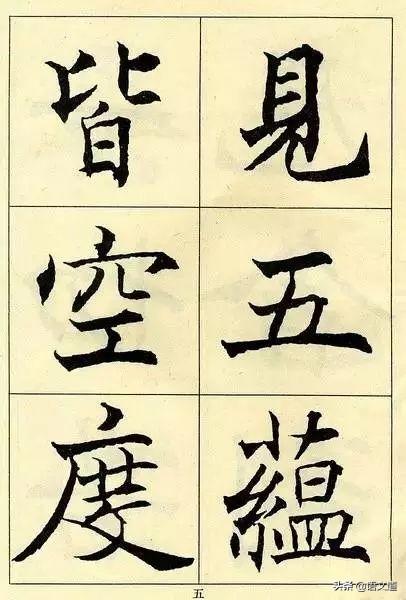 見五蘊
皆空度
五
头条@语文道